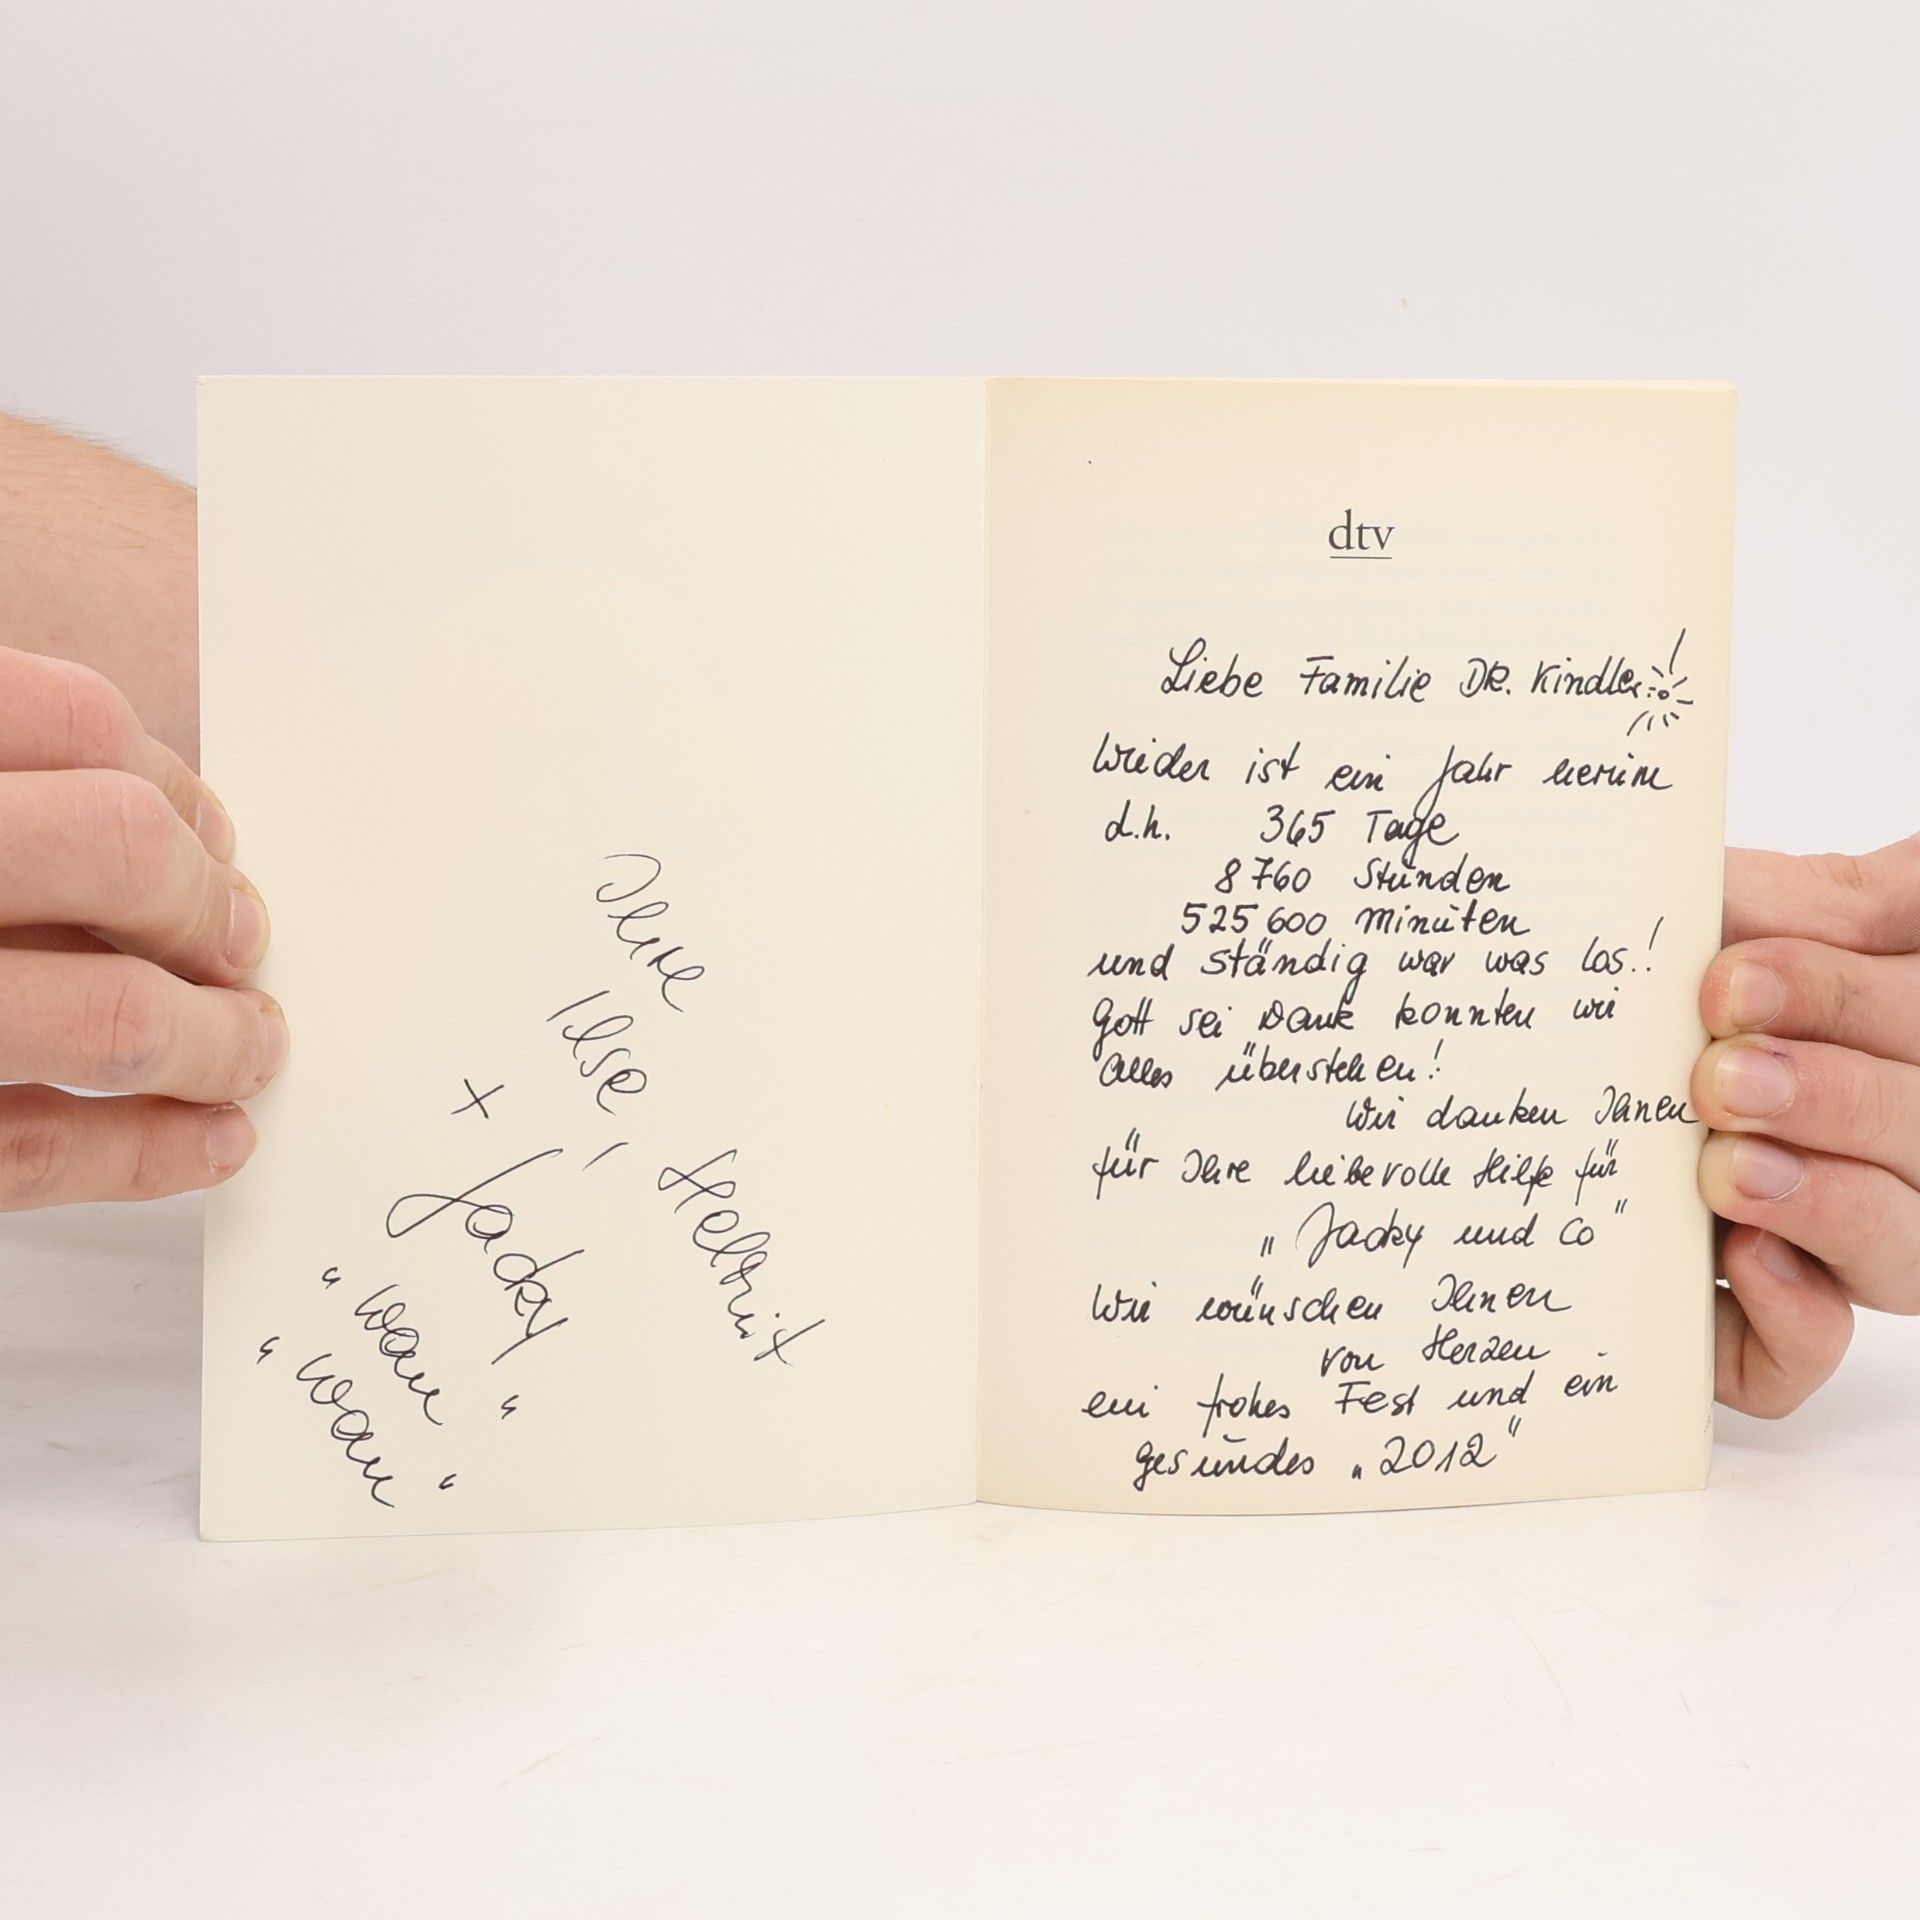 Ihre
Ilse, Helmut
+ Jacky
"wau"
"wau"
dtv
Liebe Familie DR. Kindler!
Wieder ist ein Jahr herum
d.h. 365 Tage
8760 Stunden
525600 Minuten
und ständig war was los.!
Gott sei Dank konnten wir
alles überstehen!
Wir danken Ihnen
für Ihre liebevolle Hilfe für
„Jacky und Co"
Wir wünschen Ihnen
von Herzen
ein frohes Fest und ein
gesundes „2012"